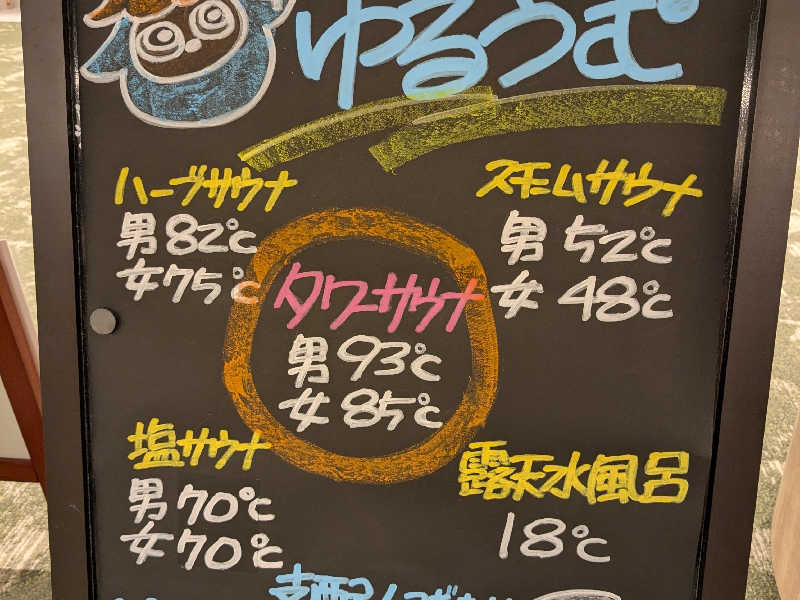 ゆるうむ
ハーブサウナ
男82℃
女75℃
スチームサウナ
男 52℃
女 48℃
タワーサウナ
男 93℃
女 85℃
塩サウナ
男70℃
女70℃
露天水風呂
18℃